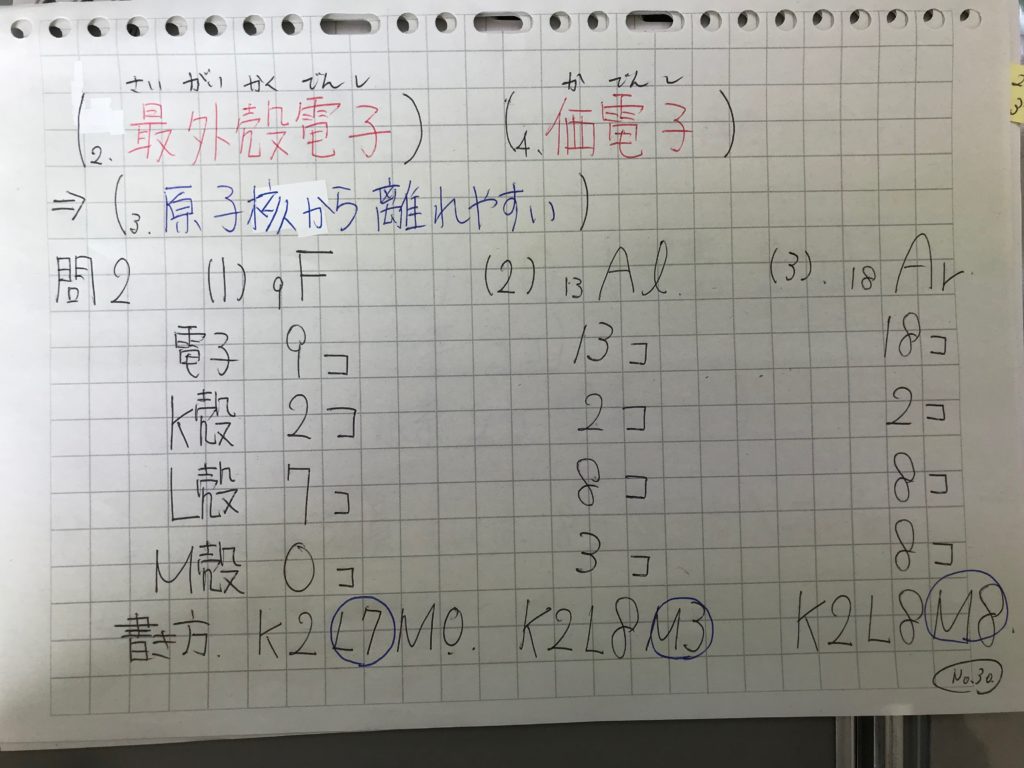 さい がい かく でんし か でんし
(2. 最外殻電子) (4. 価電子)
⇒ (3. 原子核から離れやすい)
問2 (1) ₉F (2) ₁₃Al. (3). ₁₈Ar.
電子 9コ 13コ 18コ
K殻 2コ 2コ 2コ
L殻 7コ 8コ 8コ
M殻 0コ 3コ 8コ
書き方. K2L7M0. K2L8M3 K2L8M8.
No.3a
2
3